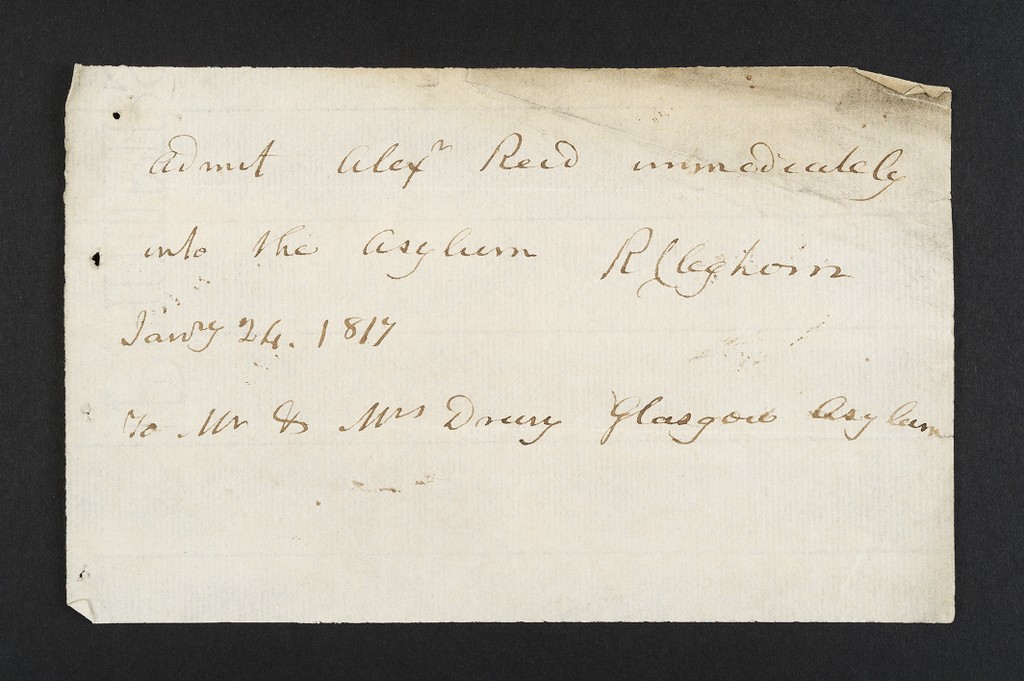 Admit Alexr Reid immediately
into the Asylum R Cleghorn
Janry 24. 1817
To Mr & Mrs Drury Glasgow Asylum